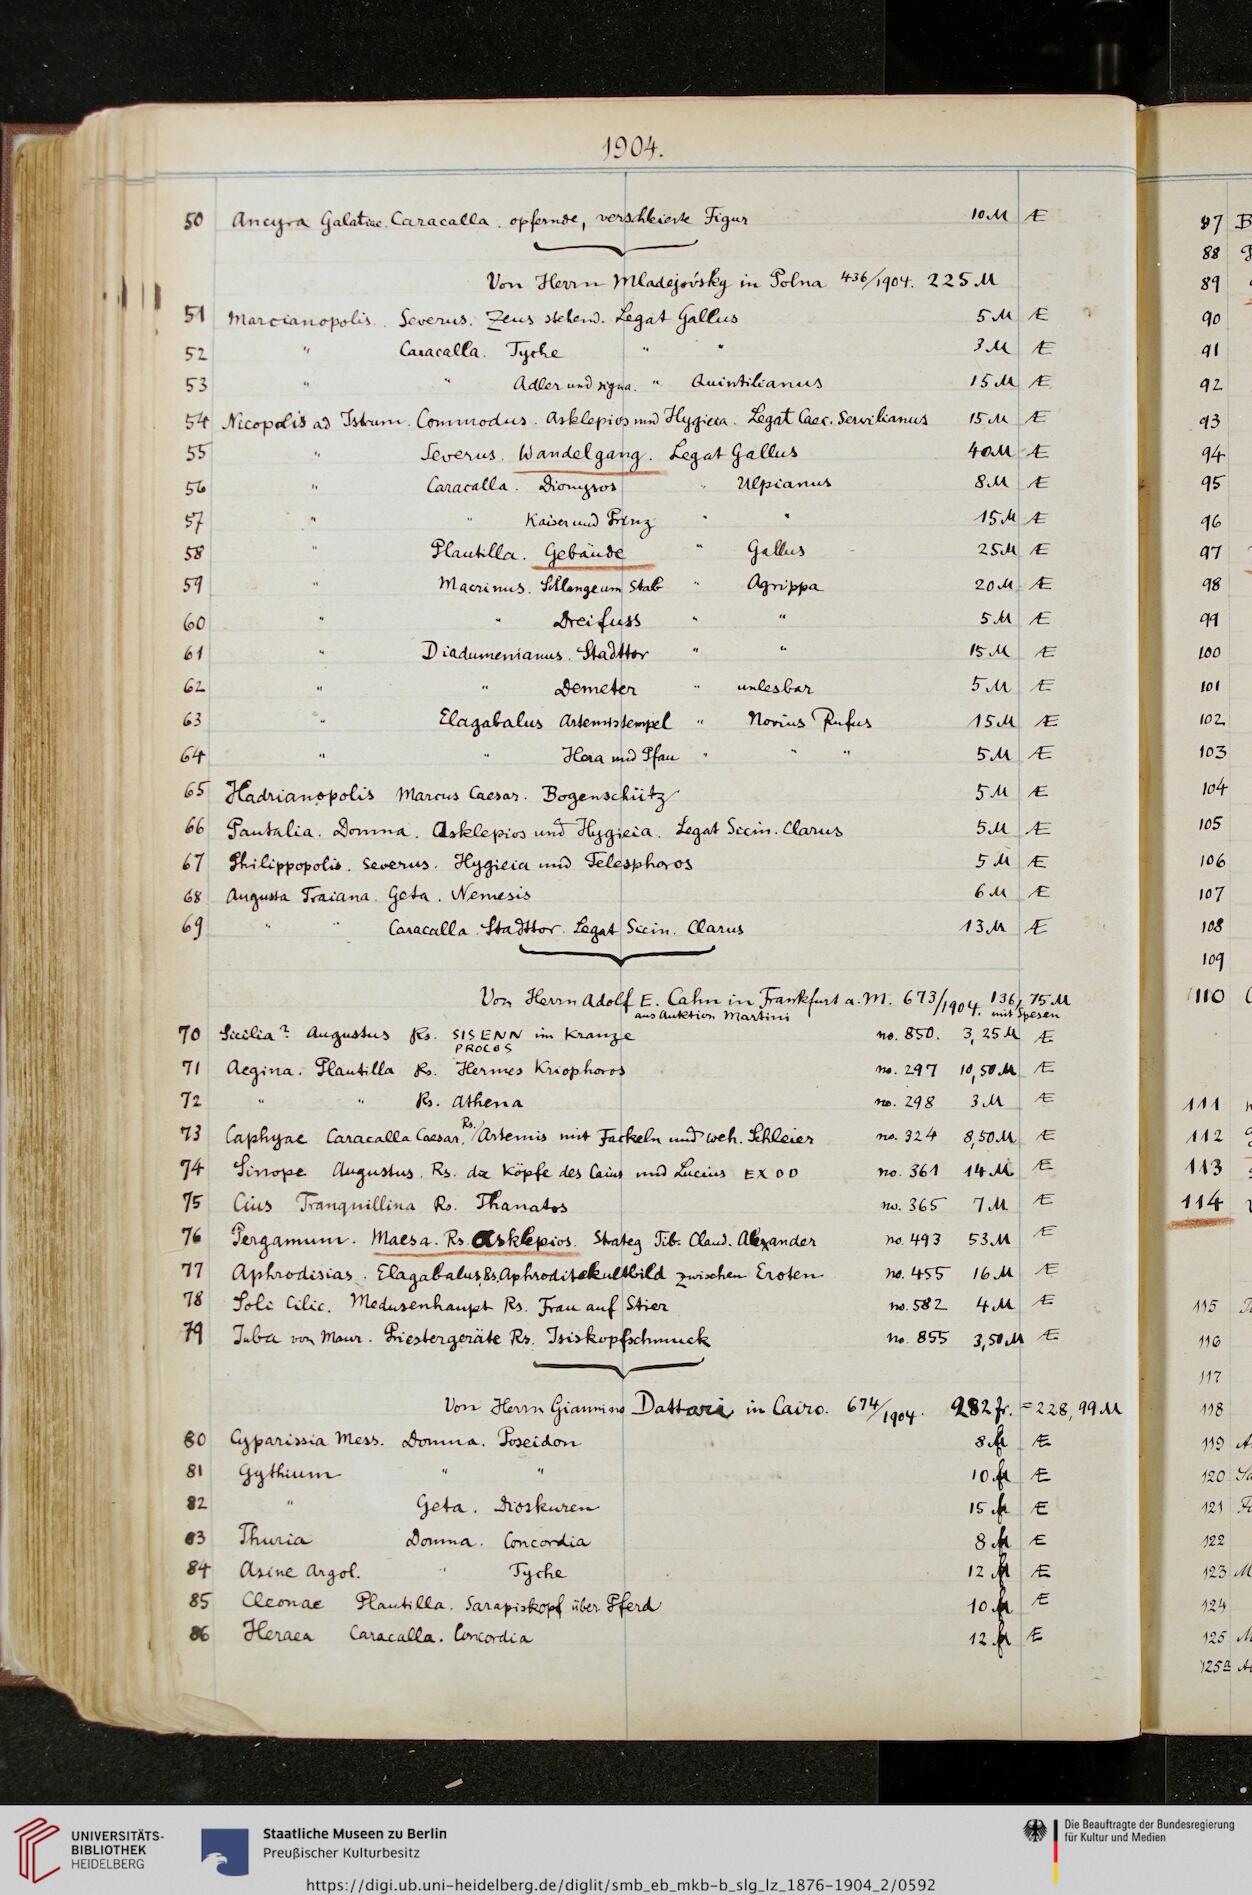 1904.
50 Ancyra Galatiae. Caracalla. opfernde, verschleierte Figur 10 M Æ
Von Herrn Mladejovsky in Polna 436/1904. 225 M
51 Marcianopolis. Severus. Zeus stehend. Legat Gallus 5 M Æ
52 " Caracalla. Tyche " " 3 M Æ
53 " " Adler und signa. " Quintilianus 15 M Æ
54 Nicopolis ad Istrum. Commodus. Asklepios und Hygieia. Legat Caec. Servilianus 15 M Æ
55 " Severus. Wandelgang. Legat Gallus 40 M Æ
56 " Caracalla. Dionysos " Ulpianus 8 M Æ
57 " " Kaiser und Prinz " " 15 M Æ
58 " Plautilla. Gebäude " Gallus 25 M Æ
59 " Macrinus. Schlange um Stab " Agrippa 20 M Æ
60 " " Dreifuss " " 5 M Æ
61 " Diadumenianus. Stadttor " " 15 M Æ
62 " " Demeter " unlesbar 5 M Æ
63 " Elagabalus Artemistempel " Novius Rufus 15 M Æ
64 " " Hera und Pfau " " " 5 M Æ
65 Hadrianopolis Marcus Caesar. Bogenschütz 5 M Æ
66 Pautalia. Domna. Asklepios und Hygieia. Legat Sicin. Clarus 5 M Æ
67 Philippopolis. Severus. Hygieia und Telesphoros 5 M Æ
68 Augusta Traiana. Geta. Nemesis 6 M Æ
69 " " Caracalla. Stadttor. Legat Sicin. Clarus 13 M Æ
Von Herrn Adolf E. Cahn in Frankfurt a. M. 673/1904. 136,75 M
aus Auktion Martini mit Spesen
70 Sicilia? Augustus Rs. SISENN im Kranze no. 850. 3,25 M Æ
PROCOS
71 Aegina. Plautilla Rs. Hermes Kriophoros no. 297 10,50 M Æ
72 " " Rs. Athena no. 298 3 M Æ
73 Caphyae Caracalla Caesar. Rs. Artemis mit Fackeln und weh. Schleier no. 324 8,50 M Æ
74 Sinope Augustus. Rs. die Köpfe des Caius und Lucius EX DD no. 361 14 M Æ
75 Cius Tranquillina Rs. Thanatos no. 365 7 M Æ
76 Pergamum. Maesa. Rs. Asklepios. Strateg Tib. Claud. Alexander no. 493 53 M Æ
77 Aphrodisias. Elagabalus, Rs. Aphroditekultbild zwischen Eroten no. 455 16 M Æ
78 Soli Cilic. Medusenhaupt Rs. Frau auf Stier no. 582 4 M Æ
79 Juba von Maur. Priestergeräte Rs. Isiskopfschmuck no. 855 3,50 M Æ
Von Herrn Giannino Dattari in Cairo. 674/1904. 282 fr. = 228,99 M
80 Cyparissia Mess. Domna. Poseidon 8 fr Æ
81 Gythium " " 10 fr Æ
82 " Geta. Dioskuren 15 fr Æ
83 Thuria Domna. Concordia 8 fr Æ
84 Asine Argol. " Tyche 12 fr Æ
85 Cleonae Plautilla. Sarapiskopf über Pferd 10 fr Æ
86 Heraea Caracalla. Concordia 12 fr Æ
87 B
88
89
90
91
92
93
94
95
96
97
98
99
100
101
102
103
104
105
106
107
108
109
110
111
112
113
114
115
116
117
118
119
120
121
122
123 M
124
125
125a
UNIVERSITÄTS-
BIBLIOTHEK
HEIDELBERG
Staatliche Museen zu Berlin
Preußischer Kulturbesitz
Die Beauftragte der Bundesregierung
für Kultur und Medien
https://digi.ub.uni-heidelberg.de/diglit/smb_eb_mkb-b_slg_lz_1876-1904_2/0592